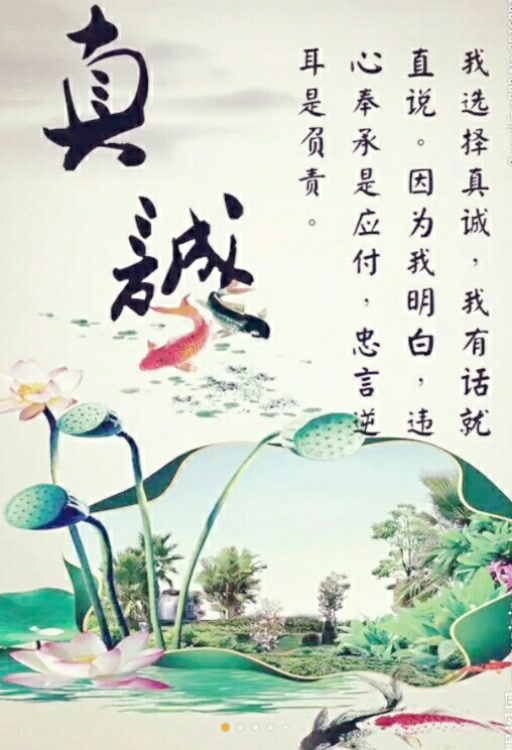 真誠
我选择真诚，我有话就
直说。因为我明白，违
心奉承是应付，忠言逆
耳是负责。